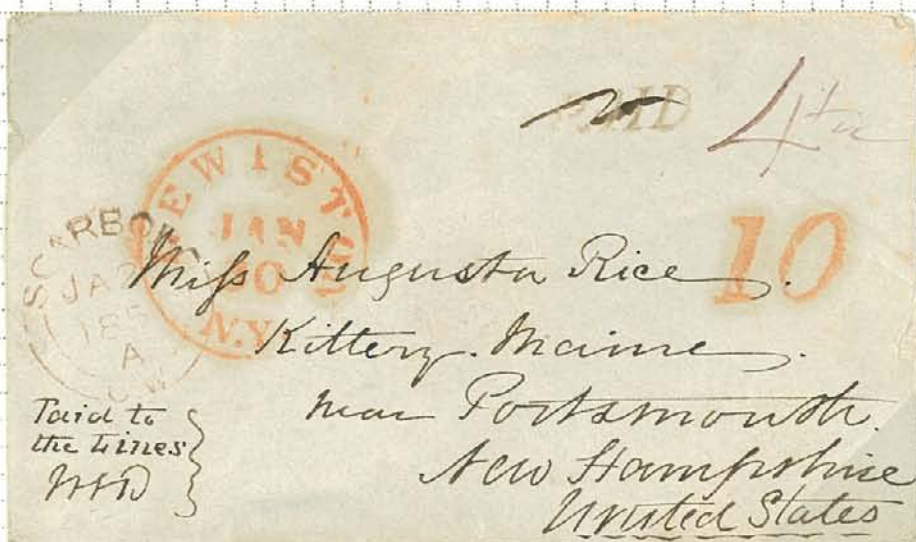 PAID
LEWISTON
JAN
30
N.Y.
10
SCARBORO
JA
185
A
C.W
Miss Augusta Rice.
Kittery. Maine.
near Portsmouth.
New Hampshire
United States
Paid to
the Lines